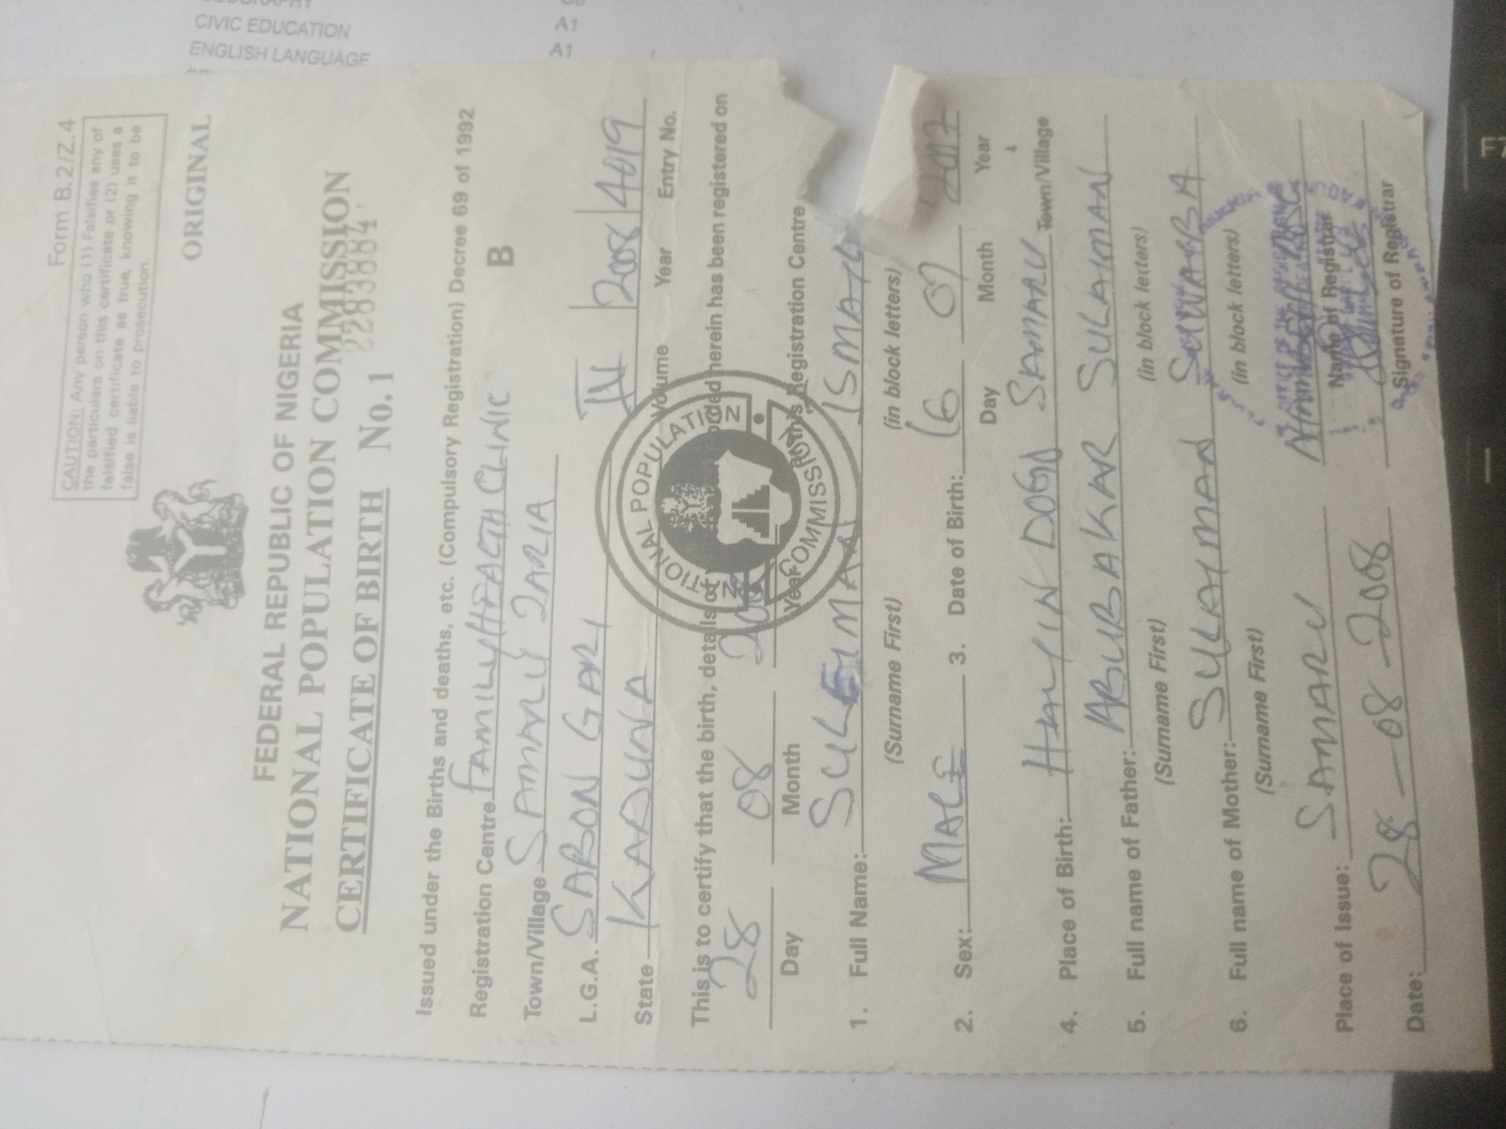 CIVIC EDUCATION A1
ENGLISH LANGUAGE A1
Form B.2/Z.4
CAUTION: Any person who (1) Falsifies any of
the particulars on this certificate or (2) uses a
falsified certificate as true, knowing it to be
false is liable to prosecution.
ORIGINAL
FEDERAL REPUBLIC OF NIGERIA
NATIONAL POPULATION COMMISSION
CERTIFICATE OF BIRTH No. 1
2283884
Issued under the Births and deaths, etc. (Compulsory Registration) Decree 69 of 1992
Registration Centre FAMILY HEALTH CLINIC B
Town/Village SAMARU ZARIA
L.G.A. SABON GARI
State KADUNA IV 2008 4019
Volume Year Entry No.
This is to certify that the birth, details of herein has been registered on
28 08 at this Registration Centre
Day Month Year
NATIONAL POPULATION COMMISSION
1. Full Name: SULEIMAN
(Surname First) (in block letters)
2. Sex: MALE 3. Date of Birth: 16 07
Day Month Year
4. Place of Birth: HAYIN DOGO SAMARU Town/Village
5. Full name of Father: ABUBAKAR SULAIMAN
(Surname First) (in block letters)
6. Full name of Mother: SULAIMAN
(Surname First) (in block letters)
Place of Issue: SAMARU
Name of Registrar
Date: 28-08-2008
Signature of Registrar
F7